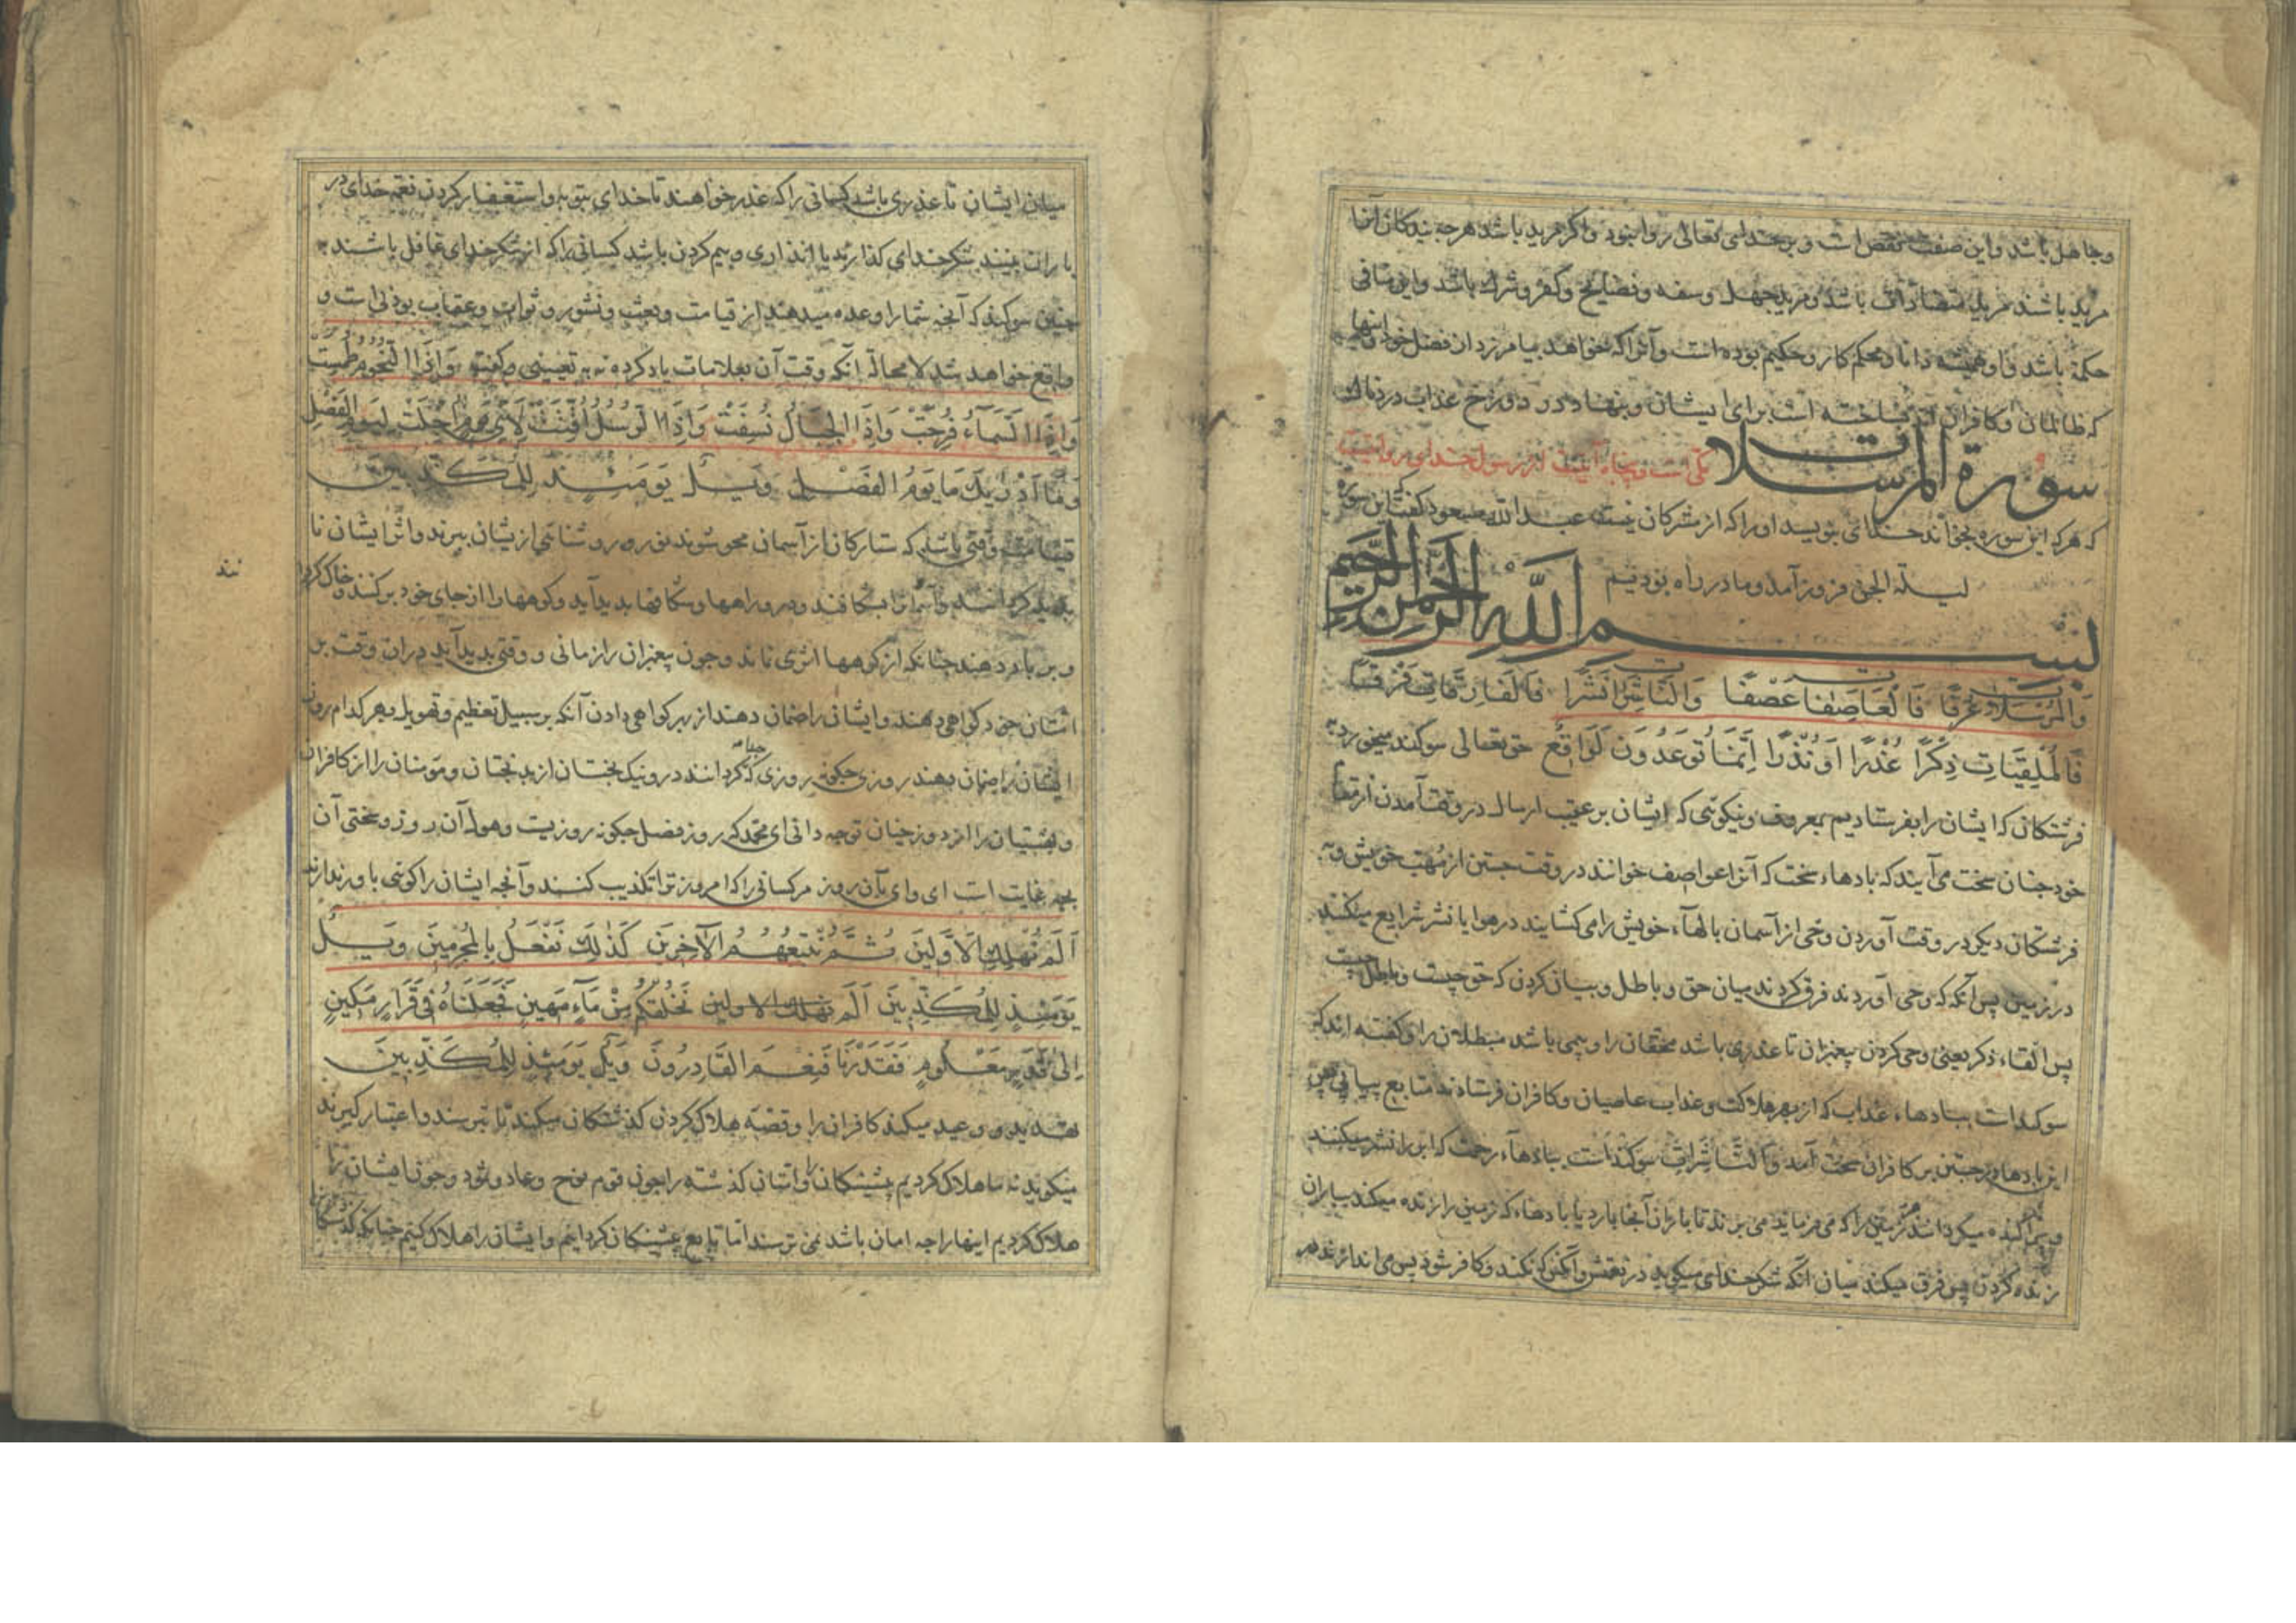 وجاهل باشد واین صفت نقص است و بر خدای تعالی روا نبود واکر مرید باشد هرچه بندکان آنرا
مرید باشند مرید متضادات باشد ومرید جهل وسفه و فضایح وکفر وشرک باشد واین منافی
حکمة باشد واو همیشه دانا ومحکم کار وحکیم بوده است وآنرا که خواهد بیامرزد از فضل خود
که ظالمان وکافران اند ساخته است برای ایشان وبنهاده در دوزخ عذاب دردناک
سورة المرسلات مکی است وپنجاه آیتست از رسول خدای روایتست
که هرکه این سوره بخواند خدای بنویسد او را که از مشرکان نیست عبد الله مسعود کفت که این سوره
لیلة الجن فروز آمد وما در راه بودیم
بسم الله الرحمن الرحیم
وَالْمُرْسَلَاتِ عُرْفًا فَالْعَاصِفَاتِ عَصْفًا وَالنَّاشِرَاتِ نَشْرًا فَالْفَارِقَاتِ فَرْقًا
فَالْمُلْقِیَاتِ ذِکْرًا عُذْرًا اَوْ نُذْرًا اِنَّمَا تُوعَدُونَ لَوَاقِعٌ حق تعالی سوکند میخورد به
فرشتکان که ایشان را بفرستادیم بمعروف ونیکوئی که ایشان بر عقیب ارسال در وقت آمدن از
خود چنان سخت می آیند که بادهاء سخت که آنرا عواصف خوانند در وقت جستن از مهب خویش و به
فرشتکان دیکر در وقت آوردن وحی از آسمان بالهآء خویش را می کشایند در هوا یا نشر شرایع میکنند
در زمین پس آنکه که وحی آوردند فرق کردند میان حق و باطل و بیان کردن که حق چیست و باطل چیست
پس القاء ذکر یعنی وحی کردن پیغمبران تا عذری باشد محقان را و بیمی باشد مبطلان را و کفته اند که
سوکند است ببادهاء عذاب که از بهر هلاکت وعذاب عاصیان وکافران فرستادند متابع پیاپی پس
این بادها در جستن بر کافران سخت آمد والنَّاشِرَاتِ سوکند است ببادهآء رحمت که ابر را نشر میکنند
وپراکنده میکردانند هر زمینی را که می فرماید می برند تا باران آنجا بارد یا بادهاء که زمین را زنده میکند بباران
زنده کردن پس فرق میکند میان آنکه شکر خدای میکوید در نعمتش وآنکس که نکند وکافر شود پس می اندازند
میان ایشان تا عذری باشد کسانی را که عذر خواهند تا خدای بتوبه و استغفار کردن نعمة خدای در
باران ببینند شکر خدای کذارند یا انذاری و بیم کردن باشد کسانی را که از شکر خدای غافل باشند به
چنین سوکند که آنچه شما را وعده میدهند از قیامت وبعث ونشور وثواب وعقاب بودنی است و
واقع خواهد شد لا محالة آنکه وقت آن بعلامات یاد کرد نه به تعیین وکفت وَاِذَا النُّجُومُ طُمِسَتْ
وَاِذَا السَّمَآءُ فُرِجَتْ وَاِذَا الْجِبَالُ نُسِفَتْ وَاِذَا الرُّسُلُ اُقِّتَتْ لِاَیِّ یَوْمٍ اُجِّلَتْ لِیَوْمِ الْفَصْلِ
وَمَا اَدْرٰیکَ مَا یَوْمُ الْفَصْلِ وَیْلٌ یَوْمَئِذٍ لِلْمُکَذِّبِینَ
قیامت وقتی باشد که ستارکان از آسمان محو شوند نور و روشنائی ازیشان ببرند واثر ایشان نا
ند
پدید کردانند وآسمانرا بشکافند ودر و راهها وشکافها بدید آید وکوهها را از جای خود برکنند وخاک کردانند
و بر باد دهند چنانکه از کوهها اثری نماند وچون پیغمبران را زمانی و وقتی بدید آید در آن وقت بر
امتان خود کواهی دهند وایشان را ضمان دهند از بهر کواهی دادن آنکه بر سبیل تعظیم وتهویل وبهر کدام روز
ایشان را ضمان دهند روزی چکونه روزی که جدا کردانند درو نیک بختان از بدبختان ومؤمنان را از کافران
وبهشتیان را از دوزخیان توچه دانی ای محمد که روز فصل چکونه روزیست وهول آن روز و سختی آن
بچه غایت است ای وای بآن روز مر کسانی را که امروز ترا تکذیب کنند وآنچه ایشان را کوئی باور ندارند
اَلَمْ نُهْلِکِ الْاَوَّلِینَ ثُمَّ نُتْبِعُهُمُ الْآخِرِینَ کَذٰلِکَ نَفْعَلُ بِالْمُجْرِمِینَ وَیْلٌ
یَوْمَئِذٍ لِلْمُکَذِّبِینَ اَلَمْ نهلك الاولین نَخْلُقْکُمْ مِنْ مَآءٍ مَهِینٍ فَجَعَلْنَاهُ فِی قَرَارٍ مَکِینٍ
اِلٰی قَدَرٍ مَعْلُومٍ فَقَدَرْنَا فَنِعْمَ الْقَادِرُونَ وَیْلٌ یَوْمَئِذٍ لِلْمُکَذِّبِینَ
تهدید و وعید میکند کافران را وقصه هلاک کردن کذشتکان میکند تا بترسند واعتبار کیرند
میکوید نه ما هلاک کردیم پیشینکان را وامتان کذشته را چون قوم نوح وعاد وثمود وچون ایشان را
هلاک کردیم اینها را چه امان باشد نمی ترسند اما تابع پیشینکان کردانیم وایشان را هلاک کنیم چنانکه کذشتکانرا